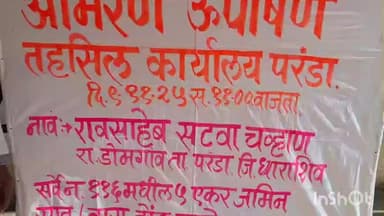 आमरण ऊपोषण
तहसिल कार्यालय परंडा.
दि.९ ११२५ स.११:०० वाजता.
नावं:→ रावसाहेब सटवा चव्हाण
रा.डोमगाव ता परंडा. जि.धाराशिव
सर्वेन ११६ मधील ५ एकर जमिन
InShOt